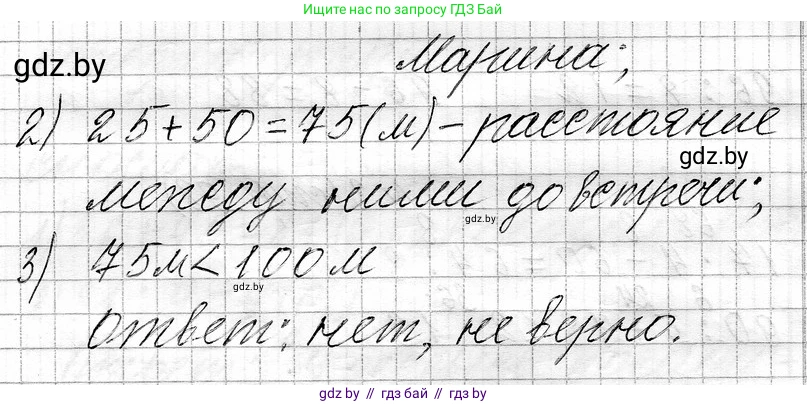 Ищите нас по запросу ГДЗ Бай
gdz.by
Марина;
2) 25+50=75(м) – расстояние
gdz.by
между ними до встречи;
gdz.by
3) 75м < 100м
gdz.by
ответ: нет, не верно.
gdz.by // гдз бай // гдз by